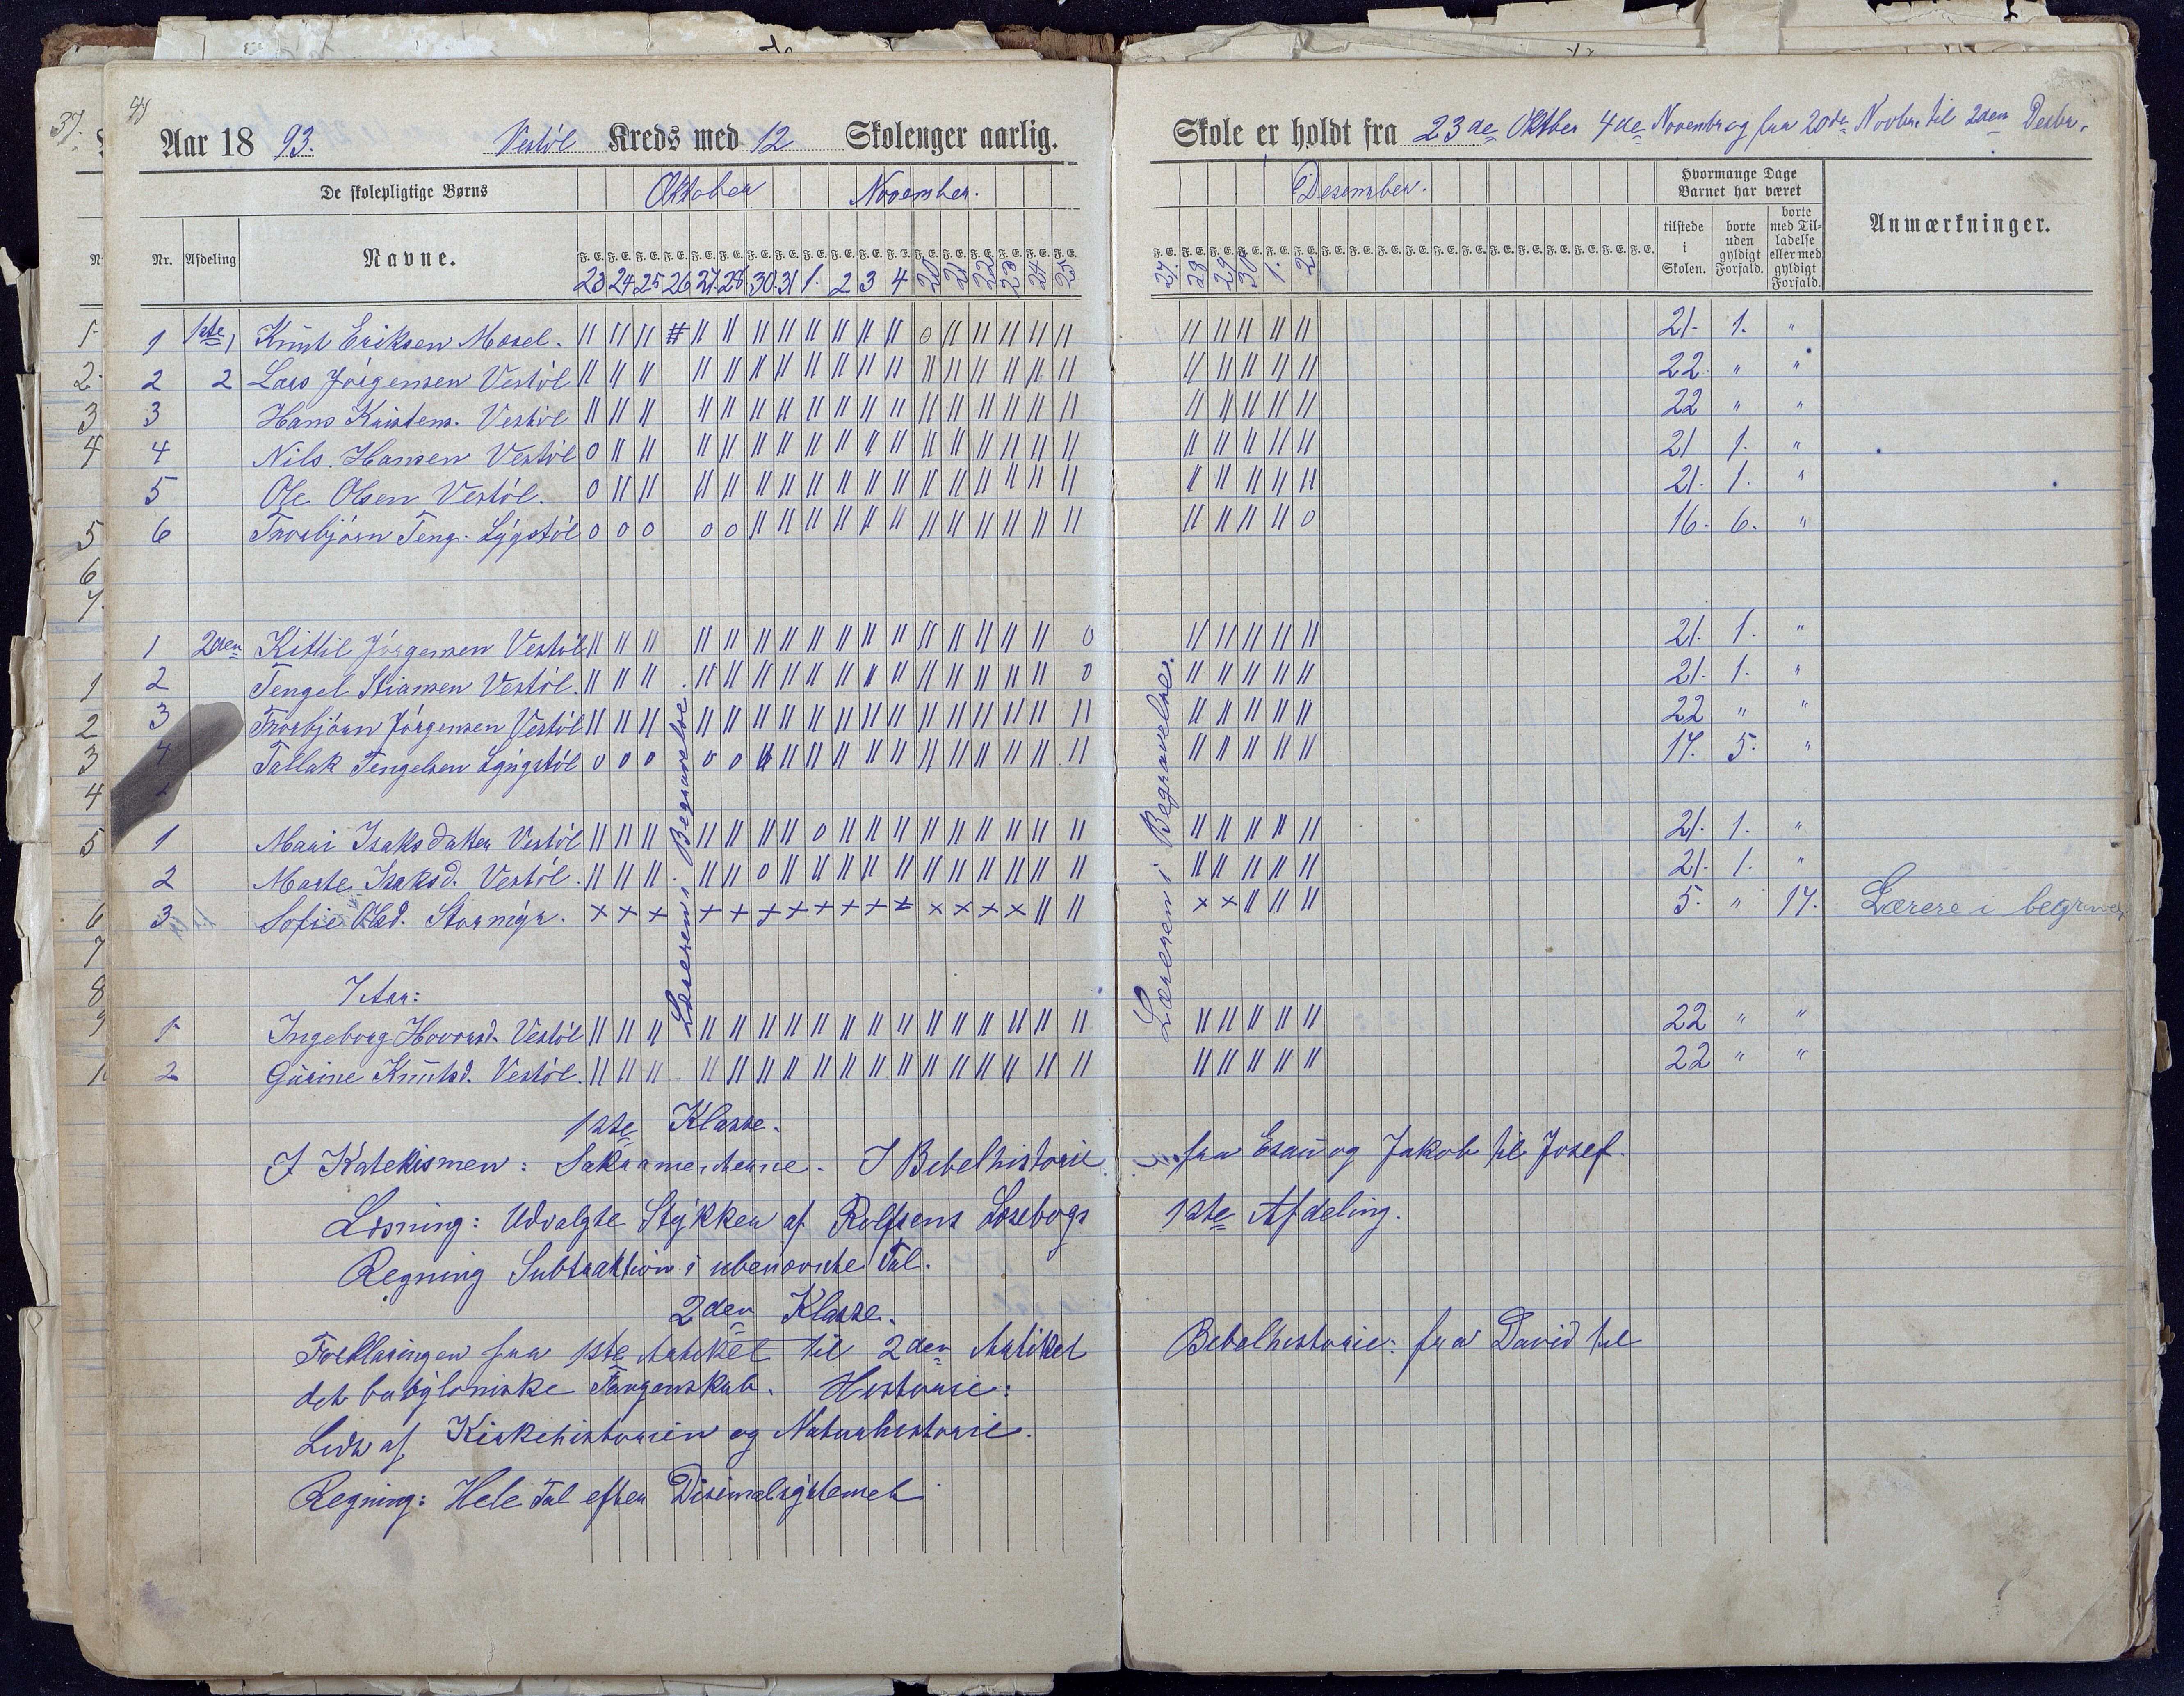 Aar 18 93. Vestöl Kreds med 12 Skolenger aarlig. Skole er holdt fra 23de Oktber 4de Novenbr og fra 20de Novbr. til 2den Desbr.
De skolepligtige Børns Oktober November. Desember. Hvormange Dage Barnet har været
Nr. Afdeling Navne. tilstede i Skolen. borte uden gyldigt Forfald. borte med Tilladelse eller med gyldigt Forfald. Anmærkninger.
F. E. F. E. F. E. F. E. F. E. F. E. F. E. F. E. F. E. F. E. F. E. F. E. F. E. F. E. F. E. F. E. F. E. F. E.
23 24 25 26 27. 28. 30. 31 1. 2 3 4 20 21 22 23 24 25 27. 28 29 30 1. 2
1 1ste Knut Eriksen Mosel. || || || # || || || || || || || || 0 || || || || || || || || || || 21. 1. "
2 2 Lars Jörgensen Vestöl || || || || || || || || || || || || || || || || || || || || || || 22. " "
3 Hans Kristens. Vestöl || || || || || || || || || || || || || || || || || || || || || || 22 " "
4 Nils. Hansen Vestöl 0 || || || || || || || || || || || || || || || || || || || || || 21 1. "
5 Ole Olsen Vestöl. 0 || || || || || || || || || || || || || || || || || || || || || 21. 1. "
6 Torbjörn Teng. Lÿgstöl 0 0 0 0 0 || || || || || || || || || || || || || || || || 0 16. 6. "
1 2den Kittil Jörgensen Vestöl || || || || || || || || || || || || || || || || 0 || || || || || 21. 1. "
2 Tengel Stiansen Vestöl. || || || || || || || || || || || || || || || || 0 || || || || || 21. 1. "
3 Torbjörn Jörgensen Vestöl || || || || || || || || || || || || || || || || || || || || || || 22 " "
4 Tallak Tengelsen Lÿgstöl 0 0 0 0 0 || || || || || || || || || || || || || || || || || 17. 5. "
1 Mari Isaksdatter Vestöl || || || || || || || 0 || || || || || || || || || || || || || || 21. 1. "
2 Marte Isaksd. Vestöl. || || || || || 0 || || || || || || || || || || || || || || || || 21. 1. "
3 Sofie Olsd. Stormÿr. x x x x x x x x x x x x x x x || || x x || || || 5. " 17. Lærere i begravel
Læreren i Begravelse
Læreren i Begravelse.
7 Aar:
1 Ingeborg Hovorsd. Vestöl || || || || || || || || || || || || || || || || || || || || || || 22 " "
2 Gurine Knutsd. Vestöl. || || || || || || || || || || || || || || || || || || || || || || 22 " "
1ste Klasse.
I Katekismen: Sakramenterne. I Bibelhistorie fra Esau og Jakob til Josef.
Læsning: Udvalgte Stÿkker af Rolfsens Læsebogs 1ste Afdeling.
Regning Subtraktion i ubenævnte Tal.
2den Klasse.
Forklaringen fra 1ste Artikel til 2den Artikel Bibelhistorie: fra David til
det babÿloniske Fangenskab. Historie:
Lidt af Kirkehistorien og Naturhistorie.
Regning: Hele Tal efter Disimalsÿstemet
37.